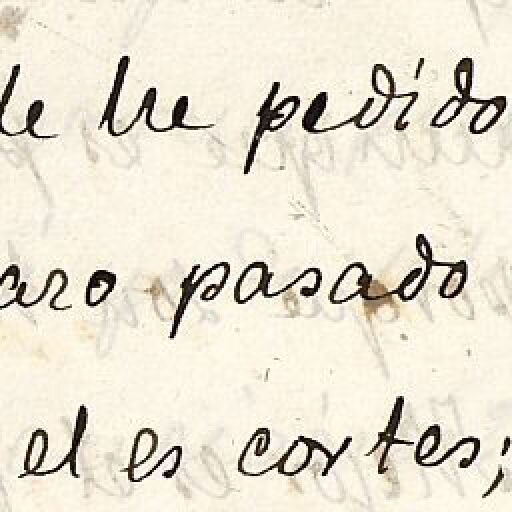 le he pedido
aro pasado
el es cortes;